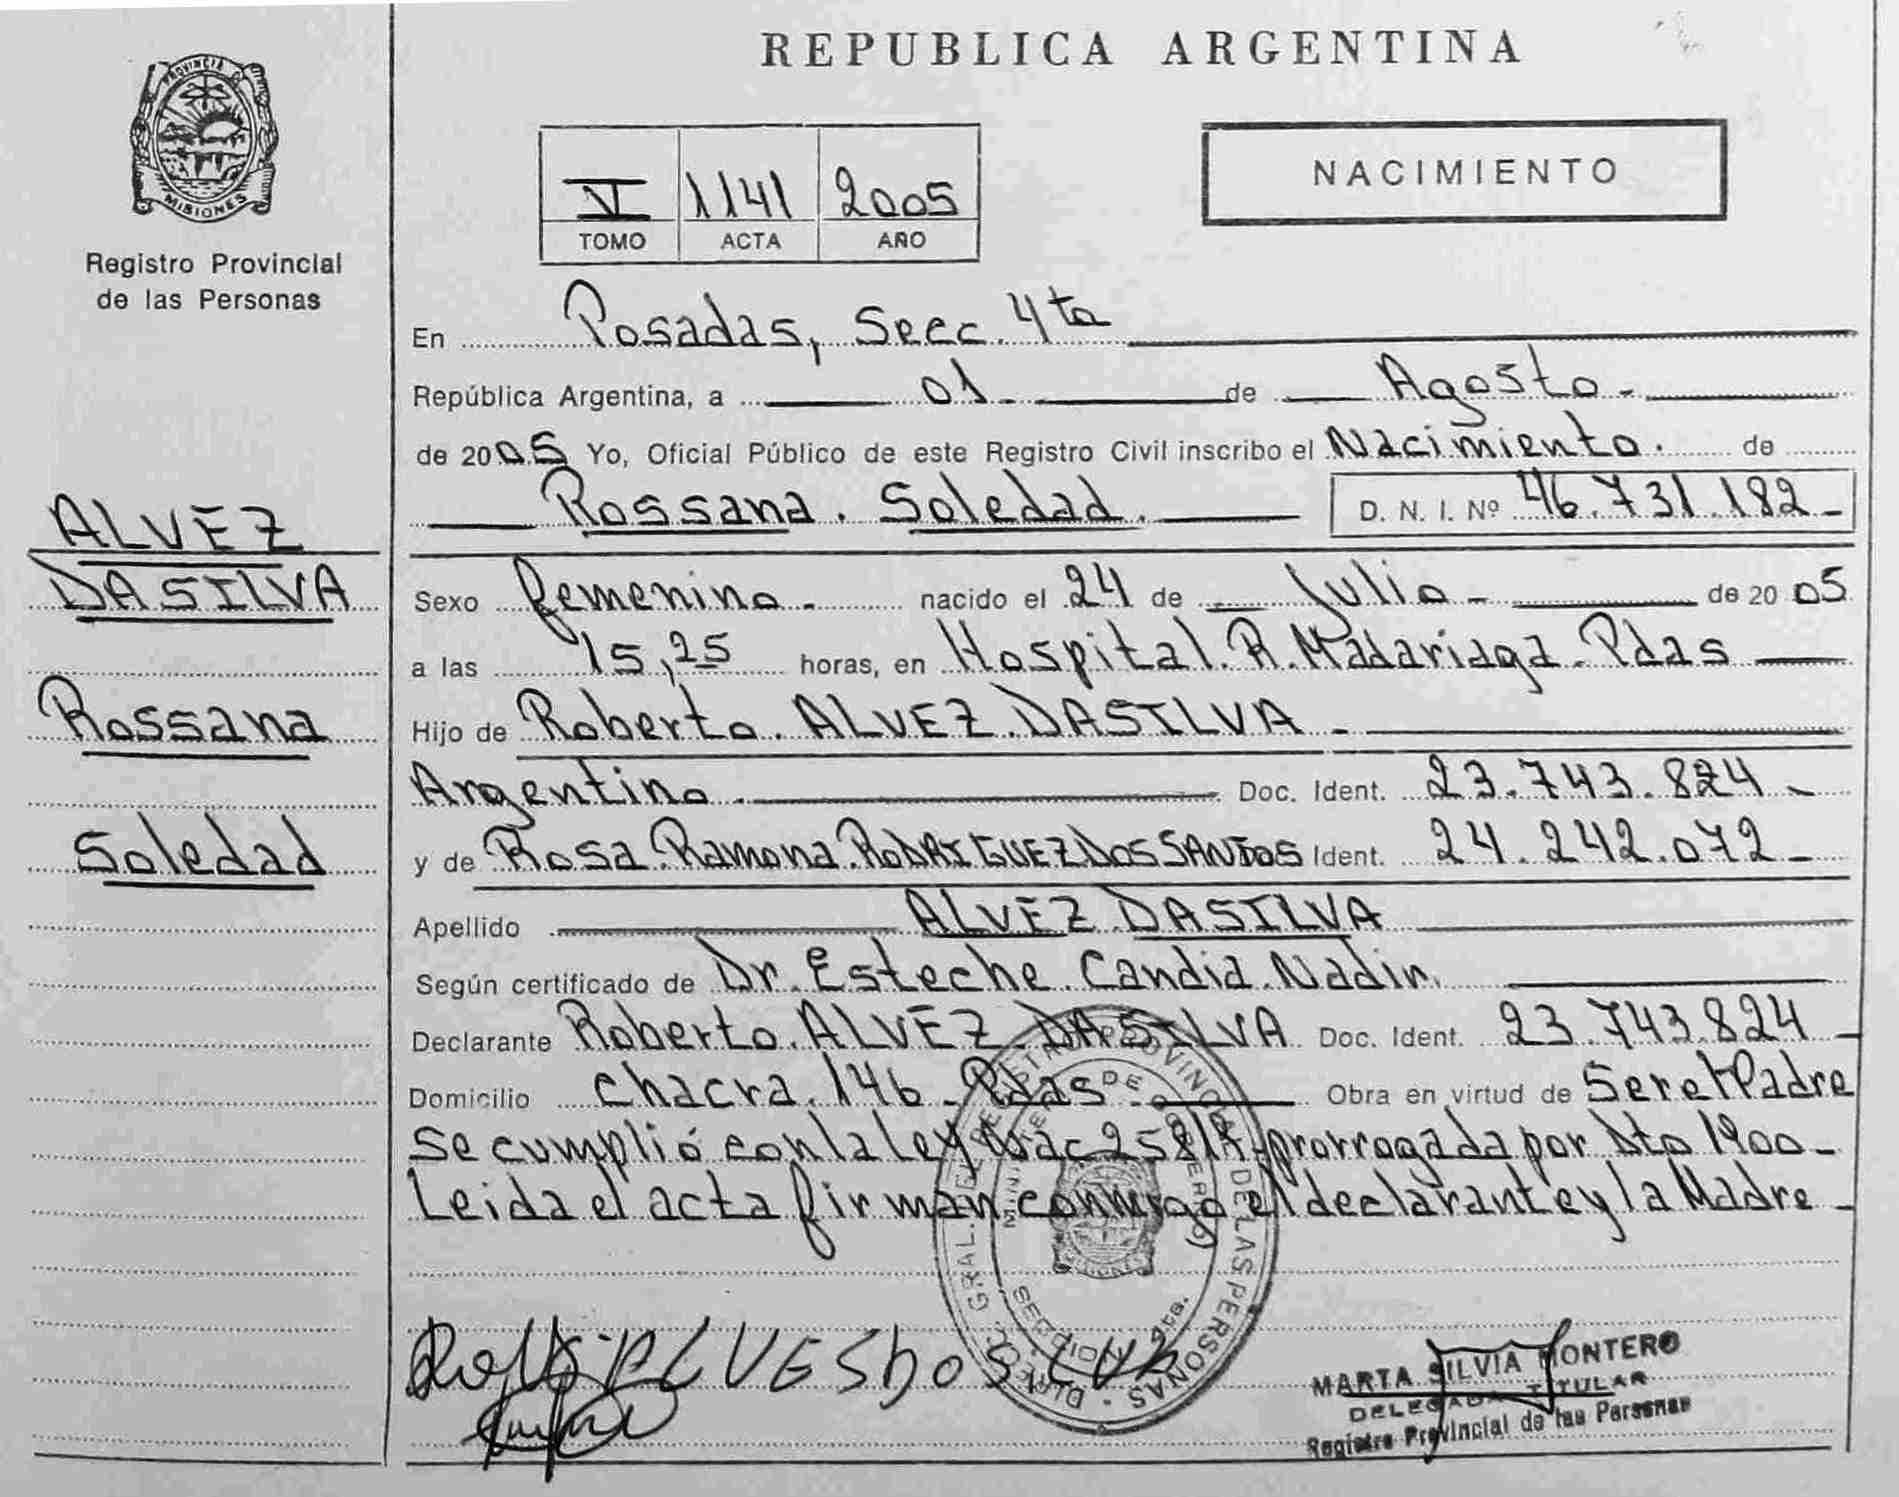 REPUBLICA ARGENTINA
PROVINCIA D
MISIONES
Registro Provincial
de las Personas
V 1141 2005
TOMO ACTA AÑO
NACIMIENTO
En Posadas, Secc. 4ta
República Argentina, a 01 - de Agosto -
de 2005 Yo, Oficial Público de este Registro Civil inscribo el Nacimiento. de
Rossana. Soledad. D. N. I. Nº 46.731.182 -
ALVEZ
DASILVA
Rossana
Soledad
Sexo femenino - nacido el 24 de Julio - de 2005
a las 15,25 horas, en Hospital. R. Madariaga. Pdas
Hijo de Roberto. ALVEZ. DASILVA. -
Argentino. Doc. Ident. 23.743.824 -
y de Rosa. Ramona. RODRIGUEZ DOS SANTOS Ident. 24.242.072 -
Apellido ALVEZ DASILVA
Según certificado de Dr. Esteche. Candia. Nadir.
Declarante Roberto. ALVEZ. DASILVA Doc. Ident. 23.743.824 -
Domicilio Chacra. 146 - Pdas - Obra en virtud de Ser el Padre
Se cumplió con la ley Nac 25819 prorrogada por Dto 1900 -
Leida el acta firman conmigo el declarante y la Madre -
DIREC. GRAL. DEL REGISTRO PROVINCIAL DE LAS PERSONAS
MINISTERIO DE GOBIERNO
MARTA SILVIA MONTERO
DELEGADA TITULAR
Registro Provincial de las Personas